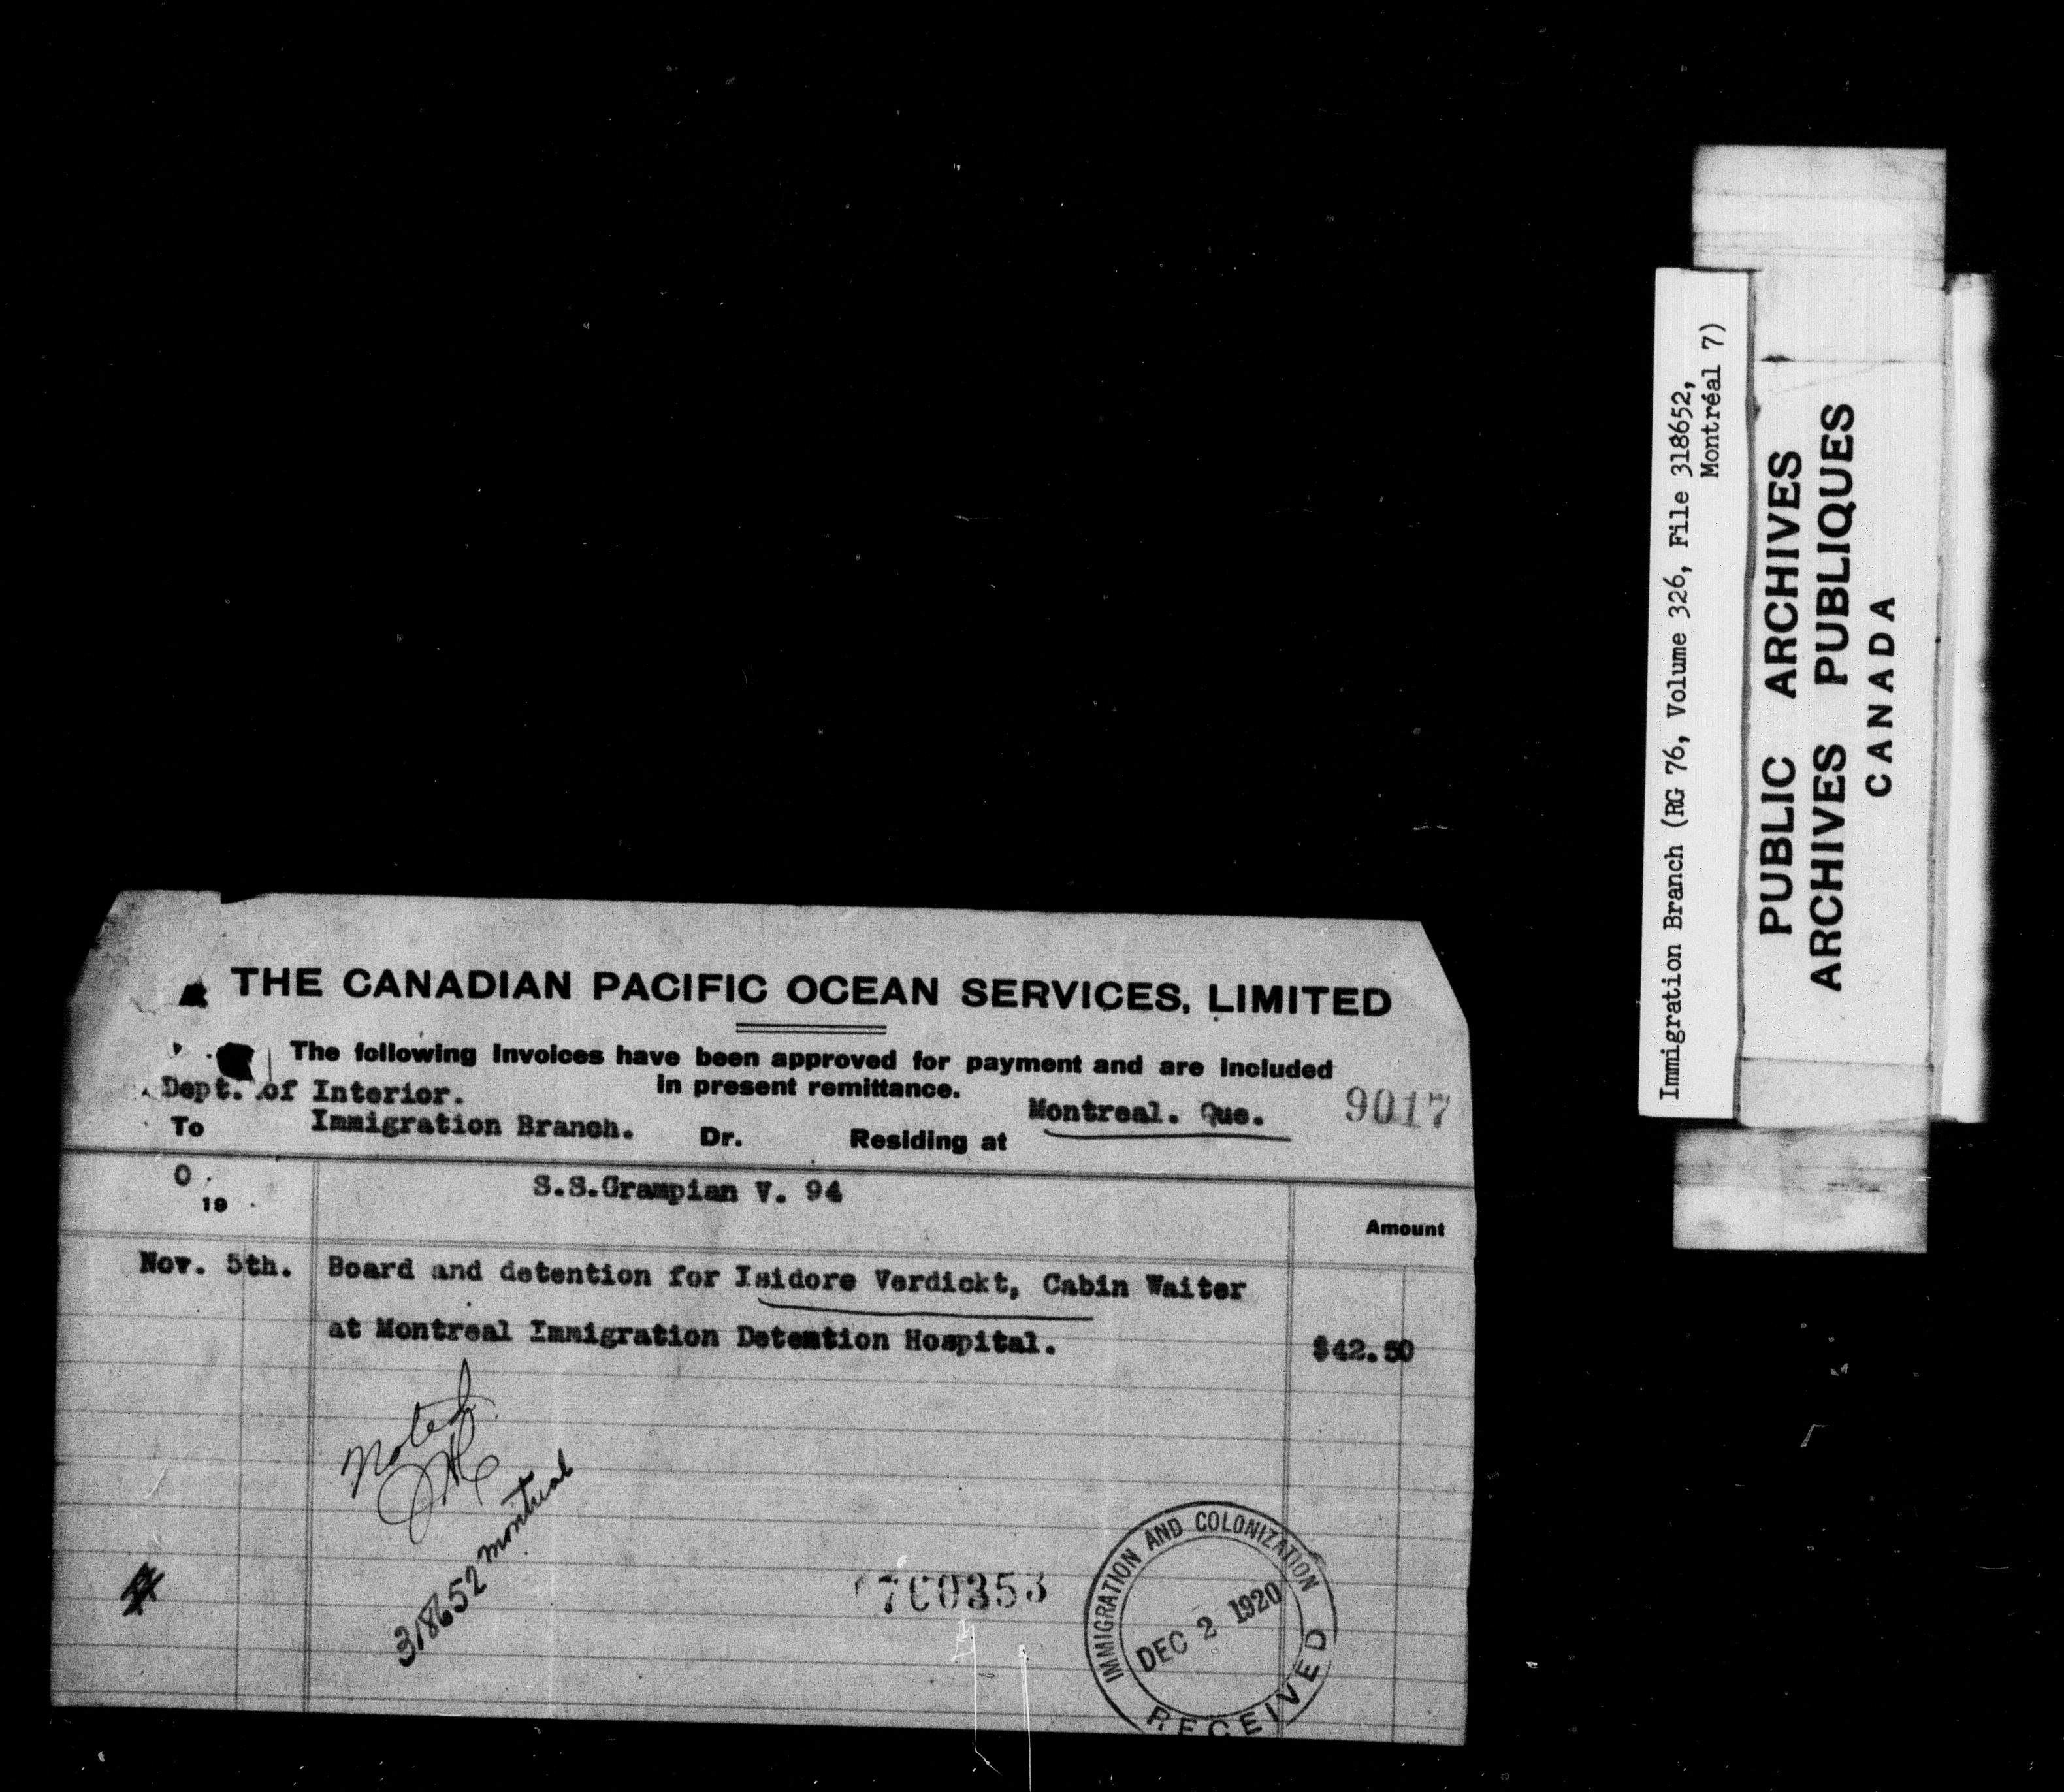 THE CANADIAN PACIFIC OCEAN SERVICES, LIMITED
The following invoices have been approved for payment and are included
in present remittance.
Dept. of Interior.
To Immigration Branch. Dr. Residing at Montreal. Que. 9017
0
19
S.S.Grampian V. 94
Amount
Nov. 5th. Board and detention for Isidore Verdickt, Cabin Waiter
at Montreal Immigration Detention Hospital. $42.50
Noted
318652 Montreal
IMMIGRATION AND COLONIZATION
DEC 2 1920
RECEIVED
Immigration Branch (RG 76, Volume 326, File 318652,
Montréal 7)
PUBLIC ARCHIVES
ARCHIVES PUBLIQUES
CANADA